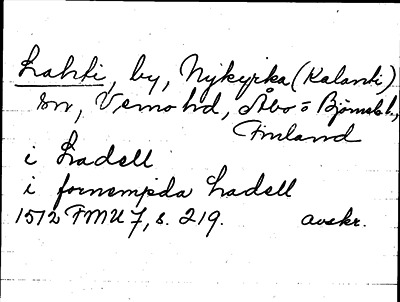 Lahti, by, Nykyrka (Kalanti)
sn, Vemo hd, Åbo = Björneb. l.,
Finland
i Ladell
i fornempda Ladell
1512 FMU 7, s. 219. avskr.